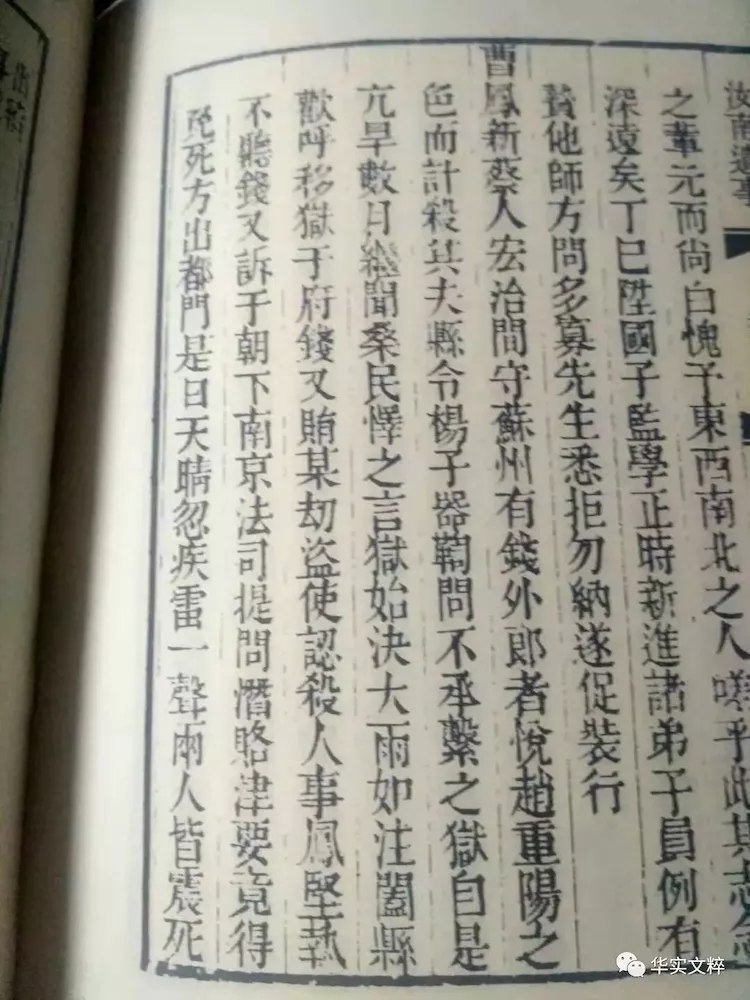 汝南遺事
之輩元而尚白愧予東西南北之人嗟乎此其志念
深遠矣丁巳陞國子監學正時新進諸弟子員例有
贄他師方問多寡先生悉拒勿納遂促裝行
曹鳳新蔡人宏治間守蘇州有錢外郎者悅趙重陽之
色而計殺其夫縣令楊子器鞫問不承繫之獄自是
亢旱數月繼聞桑民懌之言獄始決大雨如注闔縣
歡呼移獄于府錢又賄某劫盜使認殺人事鳳堅執
不聽錢又訴于朝下南京法司提問潛賂津要竟得
免死方出都門是日天晴忽疾雷一聲兩人皆震死
华实文粹